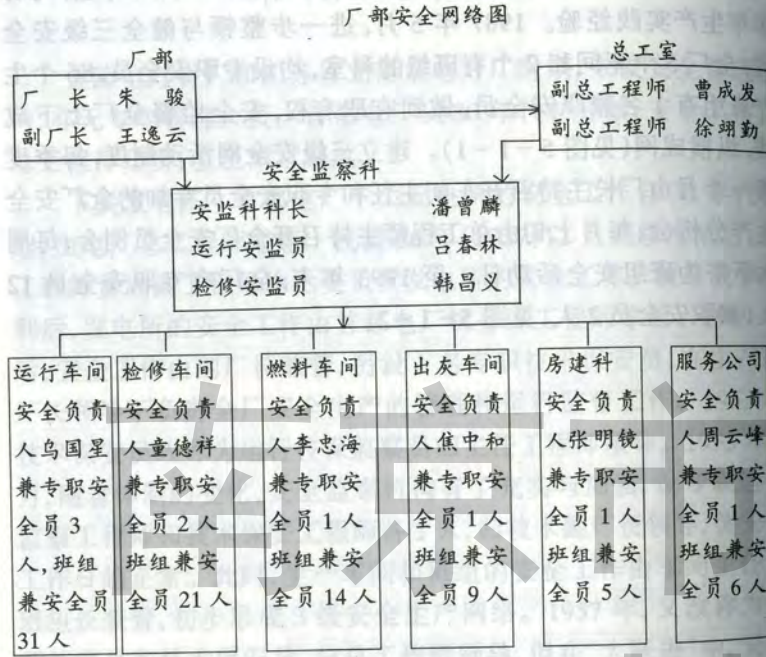 厂部安全网络图
厂部
厂 长 朱 骏
副厂长 王逸云
总工室
副总工程师 曹成发
副总工程师 徐翊勤
安全监察科
安监科科长 潘曾麟
运行安监员 吕春林
检修安监员 韩昌义
运行车间
安全负责
人乌国星
兼专职安
全员3
人,班组
兼安全员
31人
检修车间
安全负责
人童德祥
兼专职安
全员2人
班组兼安
全员21人
燃料车间
安全负责
人李忠海
兼专职安
全员1人
班组兼安
全员14人
出灰车间
安全负责
人焦中和
兼专职安
全员1人
班组兼安
全员9人
房建科
安全负责
人张明镜
兼专职安
全员1人
班组兼安
全员5人
服务公司
安全负责
人周云峰
兼专职安
全员1人
班组兼安
全员6人
南京市